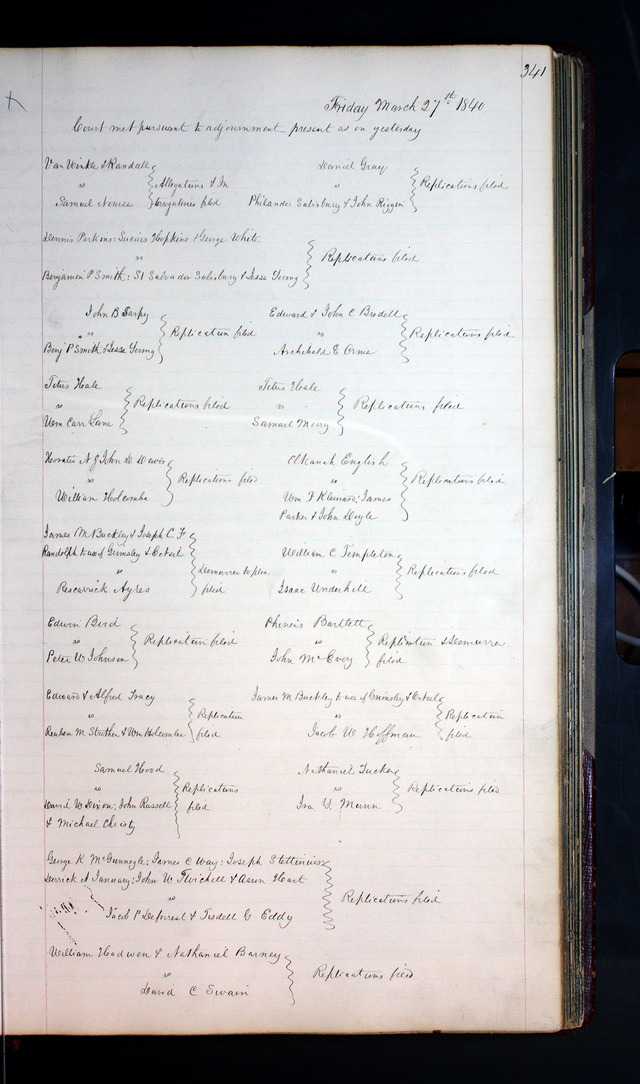 341
Friday March 27th 1840
Court met pursuant to adjournment present as on yesterday
Van Winkle & Randall
vs
Samuel Nourse
Allegations & In
terogatories filed
Daniel Gray
vs
Philander Salisbury & John Riggin
Replications filed
Dennis Perkins: Lucius Hopkins & George White
vs
Benjamin P Smith: St Salvador Salisbury & Jesse Young
Replications filed
John B Sarpy
vs
Benj P Smith & Jesse Young
Replication filed
Edward & John C Bredell
vs
Archibald E Orme
Replications filed
Titus Hale
vs
Wm Carr Lane
Replications filed
Titus Hale
vs
Samuel Merry
Replications filed
Horatio N & John D Davis
vs
William Holcombe
Replications filed
Elkanah English
vs
Wm F : James
Parker & John Doyle
Replications filed
James M Buckley & Joseph C. F
Randolph to use of Grimsley & Eckert
vs
Rescarrick Ayres
Demurrer to plea
filed
William C Templeton
vs
Isaac Underhill
Replications filed
Edwin Bird
vs
Peter W Johnson
Replication filed
Phineas Bartlett
vs
John McEvoy
Replication & Demurrer
filed
Edward & Alfred Tracy
vs
Reuben M Strother & Wm Holcombe
Replication
filed
James M Buckley to use of Grimsley & Eckert
vs
Jacob W Hoffman
Replication
filed
Samuel Hood
vs
David W Dixon: John Russell
& Michael Christy
Replications
filed
Nathaniel Tucker
vs
Ira V. Munn
Replications filed
George K McGunnegle: James C Way: Joseph Stettinius
Derrick A January: John W Twichell & Aaron Hart
vs
Jacob P Deforrest & Tisdell G Eddy
Replications filed
William Hadwen & Nathaniel Barney
vs
David C Swain
Replications filed